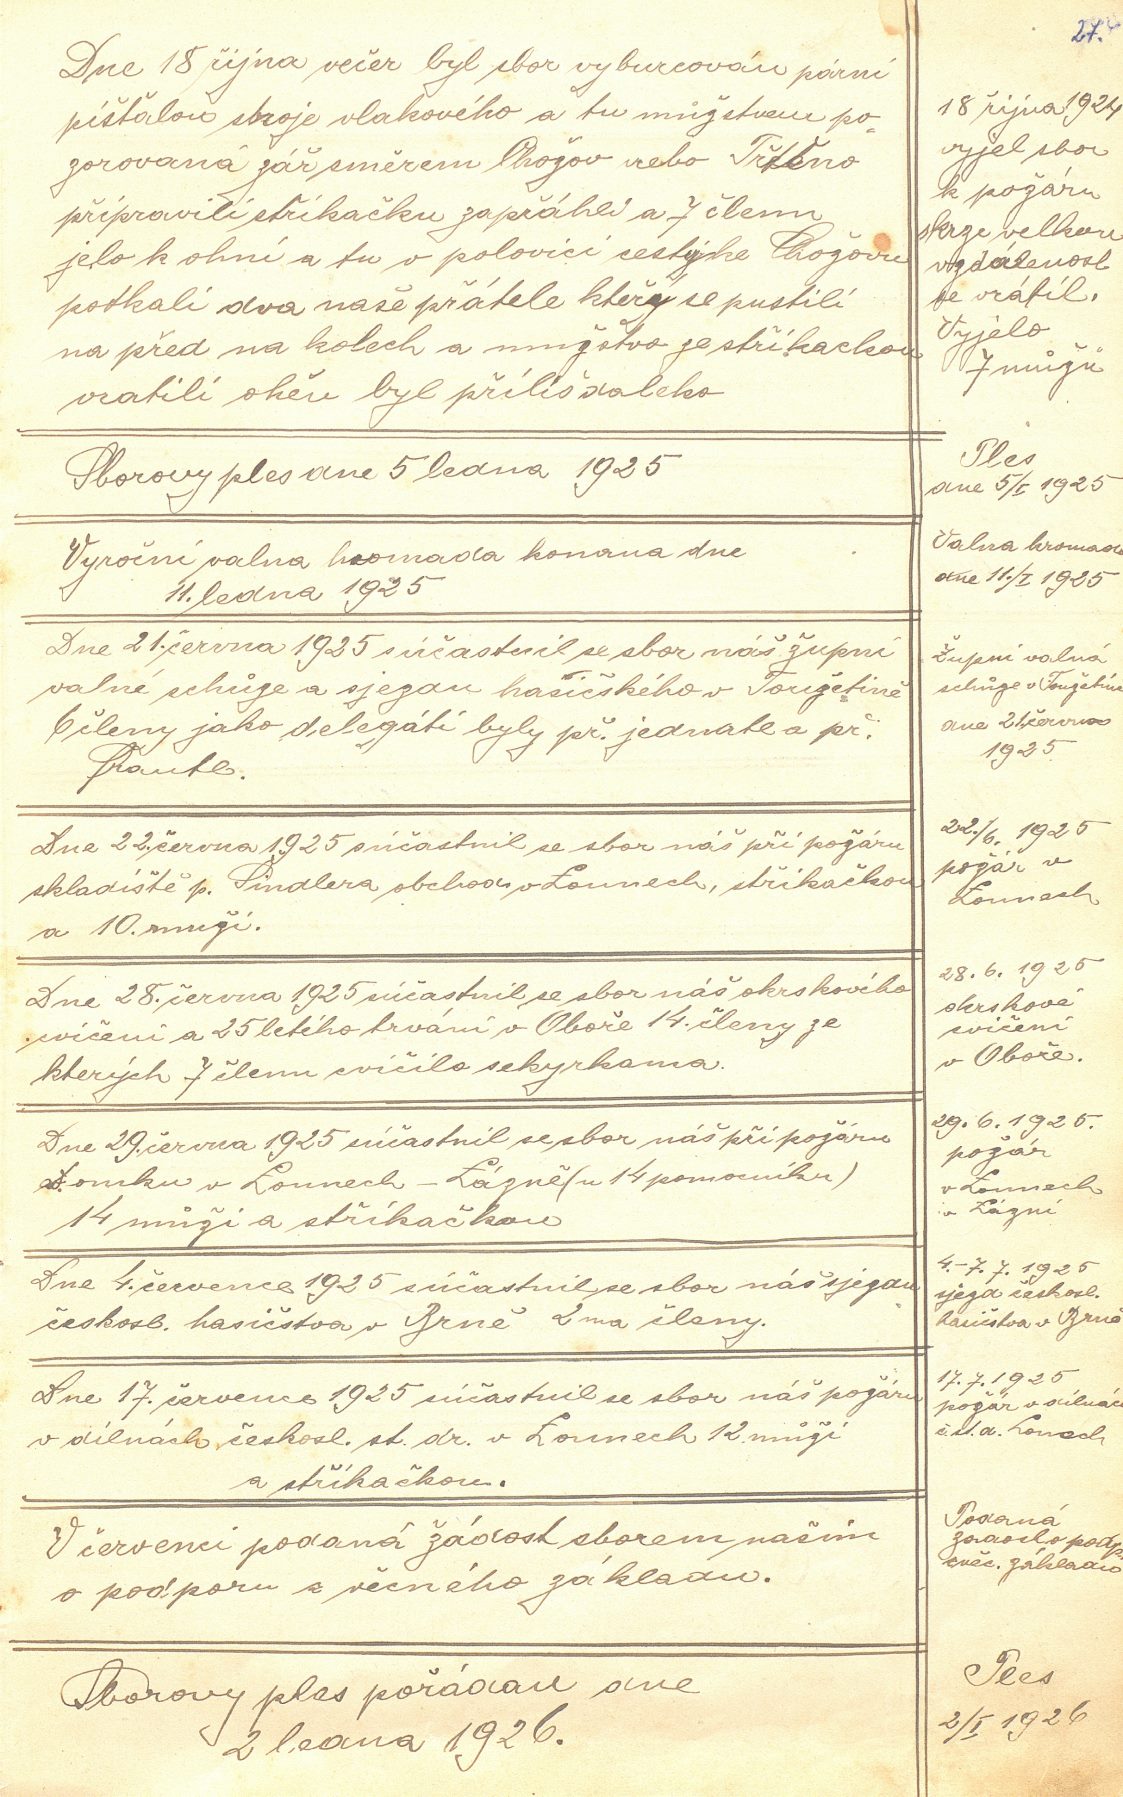 27.
Dne 18 října večer byl sbor vyburcován parní
píšťalou stroje vlakového a tu mužstvem po-
zorovaná zář směrem Chožov nebo Třtěno
připravili stříkačku zapřáhli a 7 členu
jelo k ohni a tu v polovici cesty ke Chožovu
potkali dva naše přátele kteřy se pustili
na před na kolech a mužstvo ze stříkackou
vratili oheň byl příliš daleko
18 října 1924
vyjel sbor
k požáru
skrze velkou
vzdálenost
se vrátil.
Vyjelo
7 mužů
Sborovy ples dne 5 ledna 1925
Ples
dne 5/I 1925
Vyroční valna hromada konana dne
11. ledna 1925
Valna hromada
dne 11./I 1925
Dne 21. června 1925 súčastnil se sbor náš župní
valné schůze a sjezdu hasičského v Toužetině
6 členy jako delegáti byly př. jednatel a př.
Frantl.
Župní valná
schůze v Toužetině
dne 21. června
1925
Dne 22. června 1925 súčastnil se sbor náš při požáru
skladiště p. Pindlera obchod. v Lounech, stříkačkou
a 10. muži.
22./6. 1925
požár v
Lounech
Dne 28. června 1925 súčastnil se sbor náš okrskového
cvičení a 25 letého trváni v Oboře 14. členy ze
kterých 7 členu cvičilo sekyrkama.
28. 6. 1925
okrskové
cvičení
v Oboře.
Dne 29. června 1925 súčastnil se sbor náš při požáru
domku v Lounech – Lázně (u 14 pomocníku)
14 muži a stříkačkou
29. 6. 1925.
požár
v Lounech
v Lázni
Dne 4. července 1925 súčastnil se sbor náš sjezdu
českosl. hasičstva v Brně 2ma členy.
4.–7. 7. 1925
sjezd českosl.
hasičstva v Brně
Dne 17. července 1925 súčastnil se sbor náš požáru
v dílnách českosl. st. dr. v Lounech 12 muži
a stříkačkou.
17. 7. 1925
požár v dílnách
č. st. d. Lounech
V červenci podaná žádost sborem našim
o podporu z věcného základu.
Podaná
žadost o podp.
z věc. základu
Sborovy ples pořádan dne
2 ledna 1926.
Ples
2/I 1926